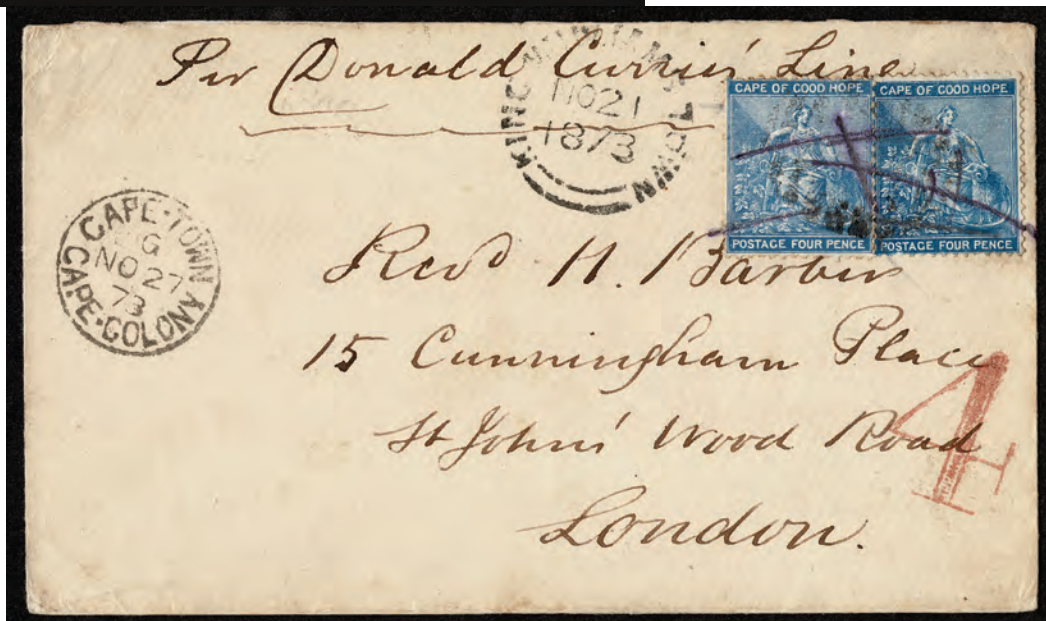 Per Donald Currie's Line
KING WILLIAM'S TOWN
NO 21
1873
CAPE OF GOOD HOPE
POSTAGE FOUR PENCE
CAPE OF GOOD HOPE
POSTAGE FOUR PENCE
CAPE-TOWN
G
NO 27
73
CAPE-COLONY
Revd H. Barber
15 Cunningham Place
St Johns' Wood Road
London.
4